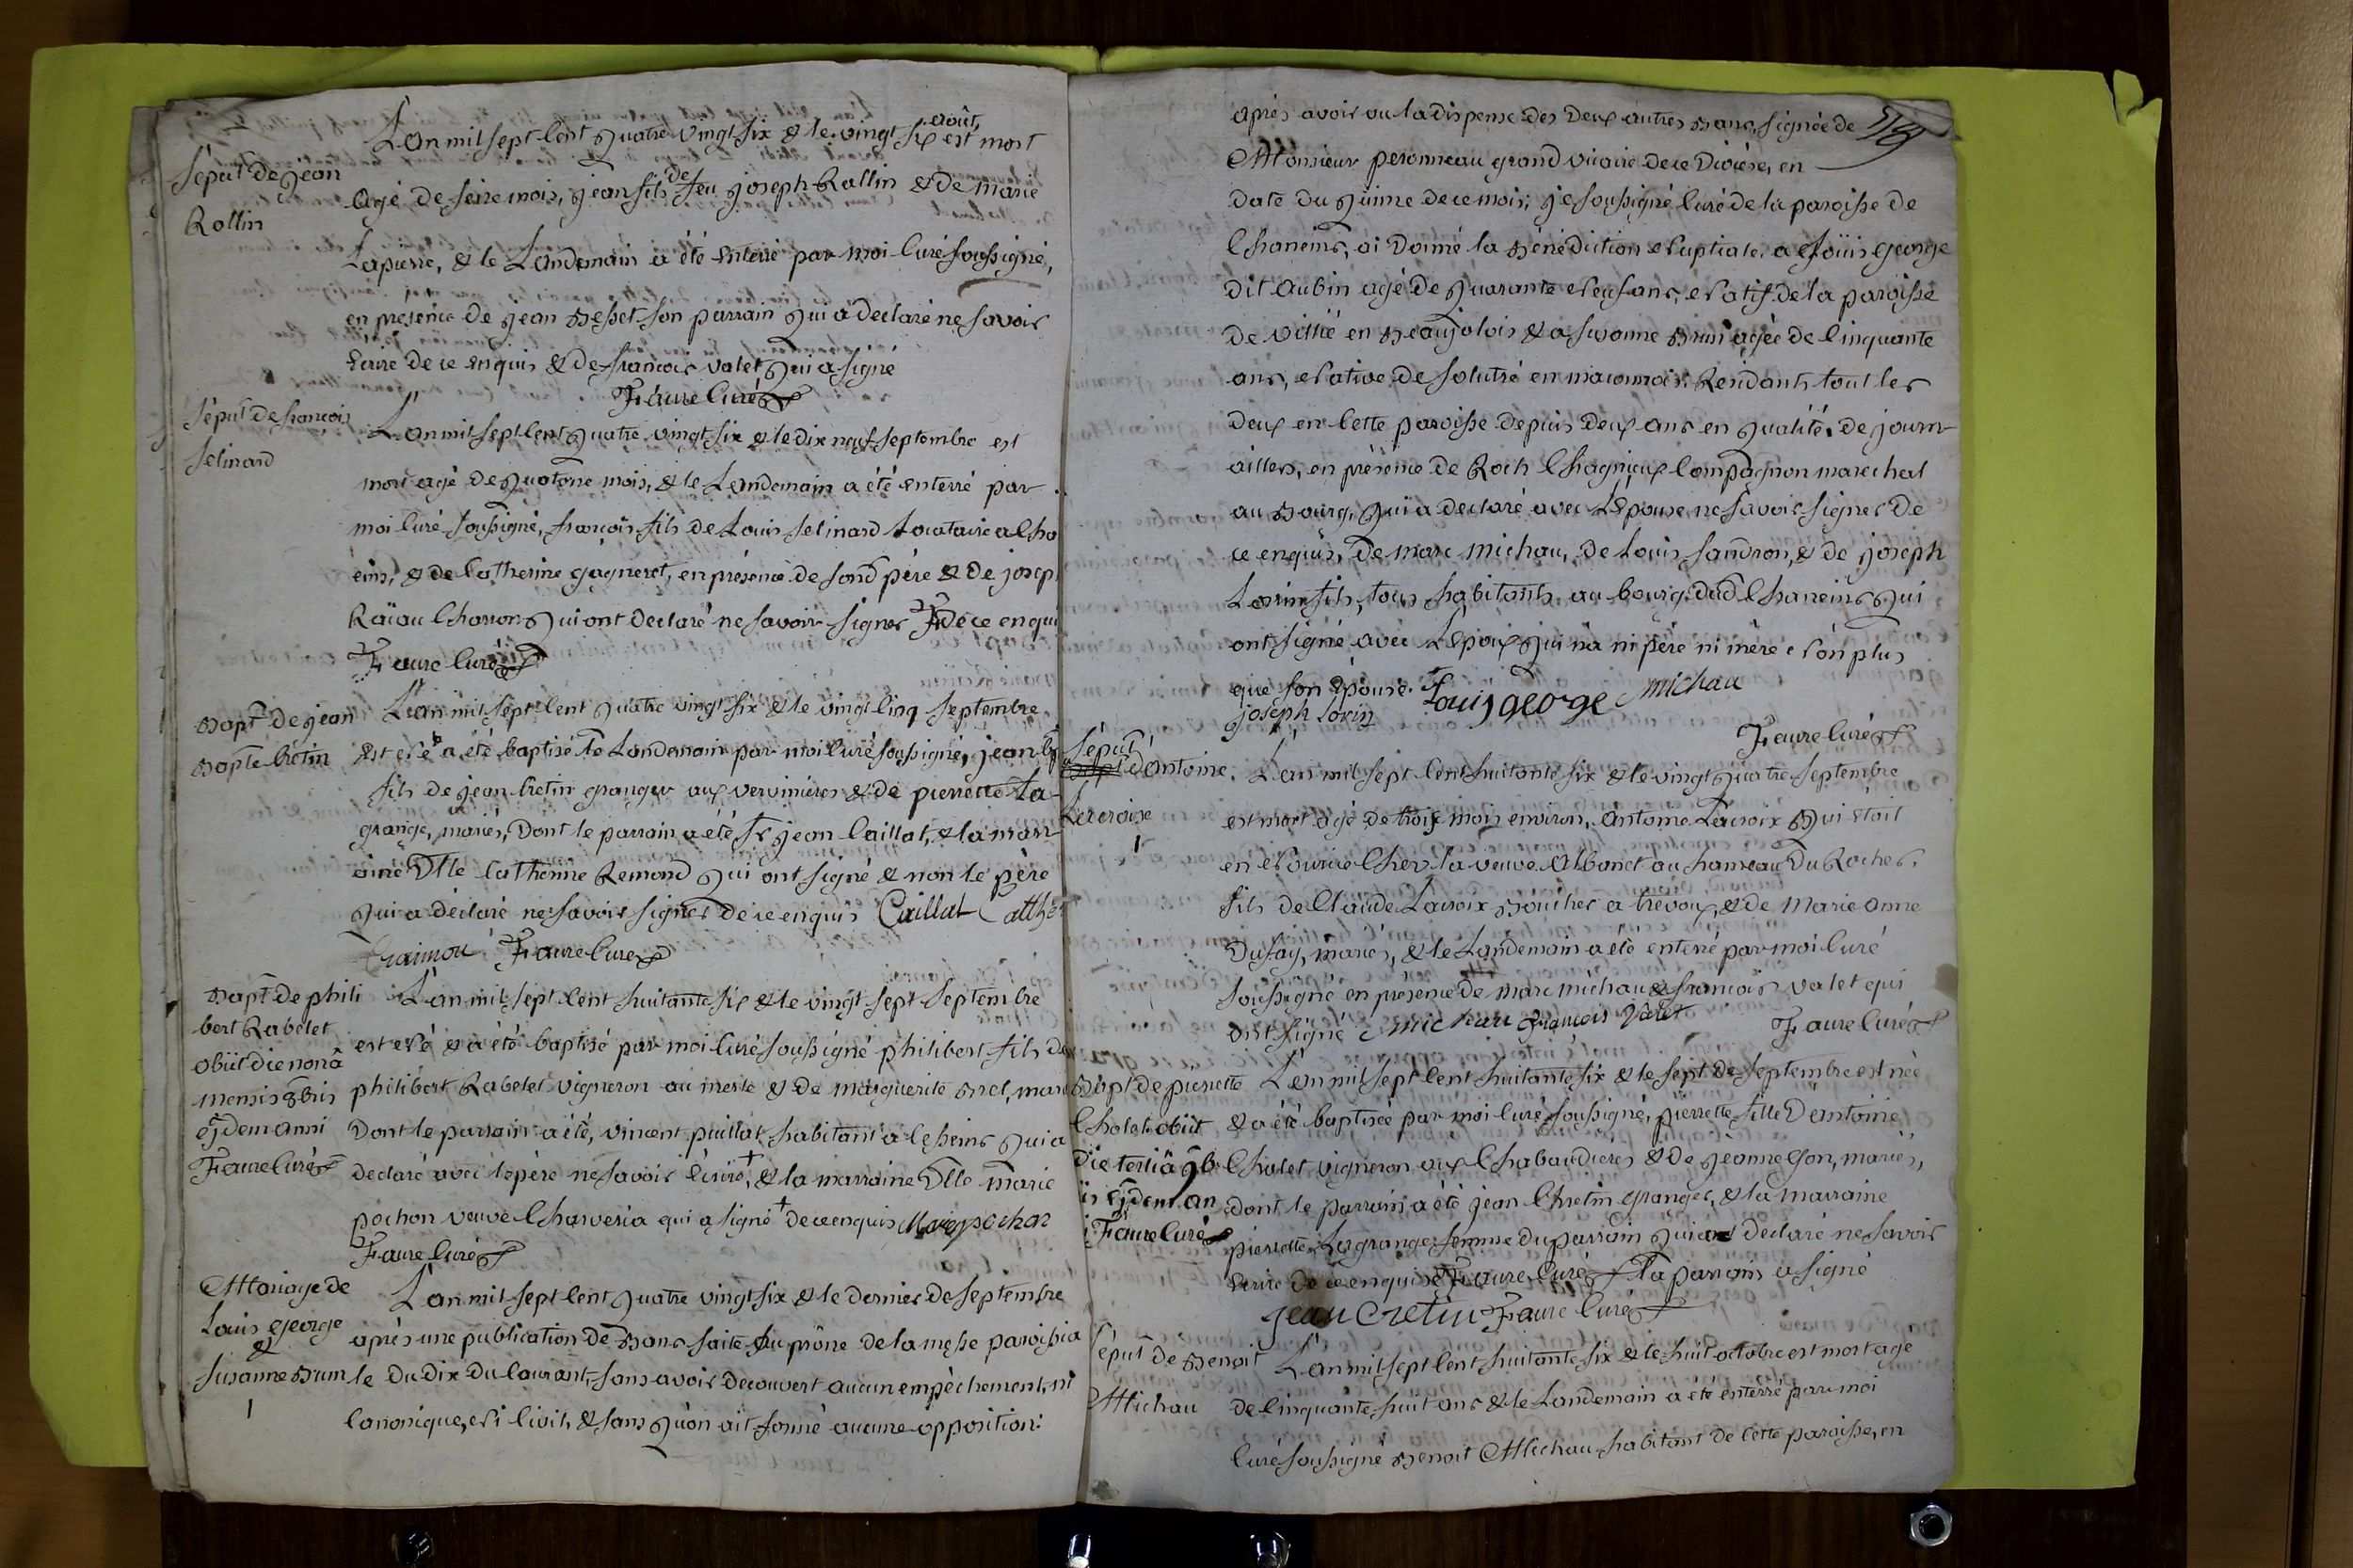 L'an mil sept cent quatre vingt six & le vingt six août est mort
Sépult de jean
Rollin
agé de seize mois, jean fils de feu joseph Rallin & de marie
Lapierre, & le Landemain a été enterré par moi curé soussigné,
en presence de jean Besset son parrain qui a declaré ne savoir
ecrire de ce enquis & de francois valet qui a signé
Faure curé
Sépult de francois
selinard
L'an mil sept cent quatre vingt six & le dix neuf septembre est
mort agé de quatorze mois, & le Landemain a été enterré par
moi curé soussigné, francois fils de Louis selinard Locataire a Cha
eins, & de Catherine gagneret, en présence de sond père & de josep
Raïau Charron qui ont declaré ne savoir signer de ce enqui
Faure curé
Bapt de jean
Bapte Crétin
L'an mil sept cent quatre vingt six & le vingt cinq septembre
est né & a été baptisé le Landemain par moi curé soussigné, jean Bt
fils de jean Cretin granger aux verninières & de pierrette La-
grange, mariés, Dont le parrain a été Sr jean Caillat, & la marr
aine Dlle Catherine Remond qui ont signé & non le père
qui a déclaré ne savoir signer de ce enquis Caillat Catthe
raimon Faure curé
Bapt de phili
bert Rabelet
obiit die nonâ
mensis 8bris
ejdem anni
Faure curé
L'an mil sept cent huitante six & le vingt sept septembre
est né & a été baptisé par moi curé soussigné philibert fils de
philibert Rabelet vigneron au merle & de marguerite Brel, mari
Dont le parrain a été, vincent puillat habitant a lesheins qui a
declaré avec le père ne savoir écrire, & la marraine Dlle marie
pochon veuve Charveria qui a signé de ce enquis Marie pochon
Faure curé
Mariage de
Louis george
&
susanne Brun
1
L'an mil sept cent quatre vingt six & le dernier de septembre
après une publication de Bans faite au prône de la messe paroissia
le du dix du courant, sans avoir decouvert aucun empêchement, ni
canonique, ni civil, & sans qu'on ait formé aucune opposition
après avoir vu la dispense des deux autres Bans, signée de
Monsieur peronneau grand vicaire de ce Diocèse, en
date du quinze de ce mois; je soussigné curé de la paroisse de
Chaneins, ai donné la Bénédiction Nuptiale a Loüis george
dit aubin agé de quarante neuf ans, natif de la paroisse
de villié en Beaujolois & a susanne Brun agée de cinquante
ans, native de solutré en maconnois. Residants tout les
deux en cette paroisse depuis deux ans en qualité de journ-
alliers, en présence de Roch Chagnieux Compagnon marechal
au Bourg, qui a declaré avec L'épouse ne savoir signer de
ce enquis, de marc michau, de Louis sandron, & de joseph
Lorin fils, tous habitants au bourg dud Chaneins qui
ont signé avec L'époux qui n'a ni père ni mère non plus
que son épouse. Louis george michau
joseph Lorin
Faure curé
Sépult
d'antoine
Lacroix
1
L'an mil sept cent huitante six & le vingt quatre septembre
est mort agé de trois mois environ, antoine Lacroix qui étoit
en Nourrice Chez la veuve Albanet au hameau du Rocher,
fils de Claude Lacroix Boucher a trevoux, & de Marie anne
Dufay, mariés, & le Landemain a été enterré par moi curé
soussigné en présence de marc michau & francois valet qui
ont signé michau françois valet Faure curé
Bapt de pierrette
Cholet obiit
die tertiâ 9br
is ejdem an
i Faure curé
L'an mil sept cent huitante six & le sept de septembre est née
& a été baptisée par moi curé soussigné, pierrette fille d'antoine
Cholet vigneron aux Chabaudieres & de jeanne Gon, mariés,
dont le parrain a été jean Cretin granger, & la marraine
pierrette Lagrange femme du parrain qui a declaré ne savoir
ecrire de ce enquise Faure curé Le parrain a signé
jean cretin Faure curé
Sépult de Benoit
Michau
L'an mil sept cent huitante six & le huit octobre est mort agé
de cinquante huit ans & le Landemain a été enterré par moi
curé soussigné Benoit Michau habitant de cette paroisse, en